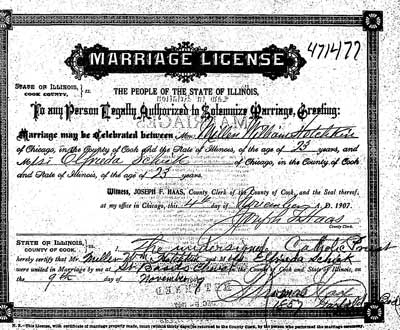 MARRIAGE LICENSE
471477
STATE OF ILLINOIS,
COOK COUNTY,
THE PEOPLE OF THE STATE OF ILLINOIS,
To any Person Legally Authorized to Solemnize Marriage, Greeting:
Marriage may be Celebrated between Mr. Miller William
of Chicago, in the County of Cook and the State of Illinois, of the age of 23 years, and
M Elfrida Schick of Chicago, in the County of Cook
and State of Illinois, of the age of 23 years.
Witness, JOSEPH F. HAAS, County Clerk of the County of Cook, and the Seal thereof,
at my office in Chicago, this 4th day of November A. D. 1907.
Joseph F. Haas
County Clerk.
STATE OF ILLINOIS,
COOK COUNTY
I, The undersigned Catholic Priest
hereby certify that Mr. Miller Wm and Elfrida Schick
were united in Marriage by me at Church in the County of Cook and State of Illinois, on
the 9th day of November
1557
N. B.—This License, with certificate of marriage properly made, must